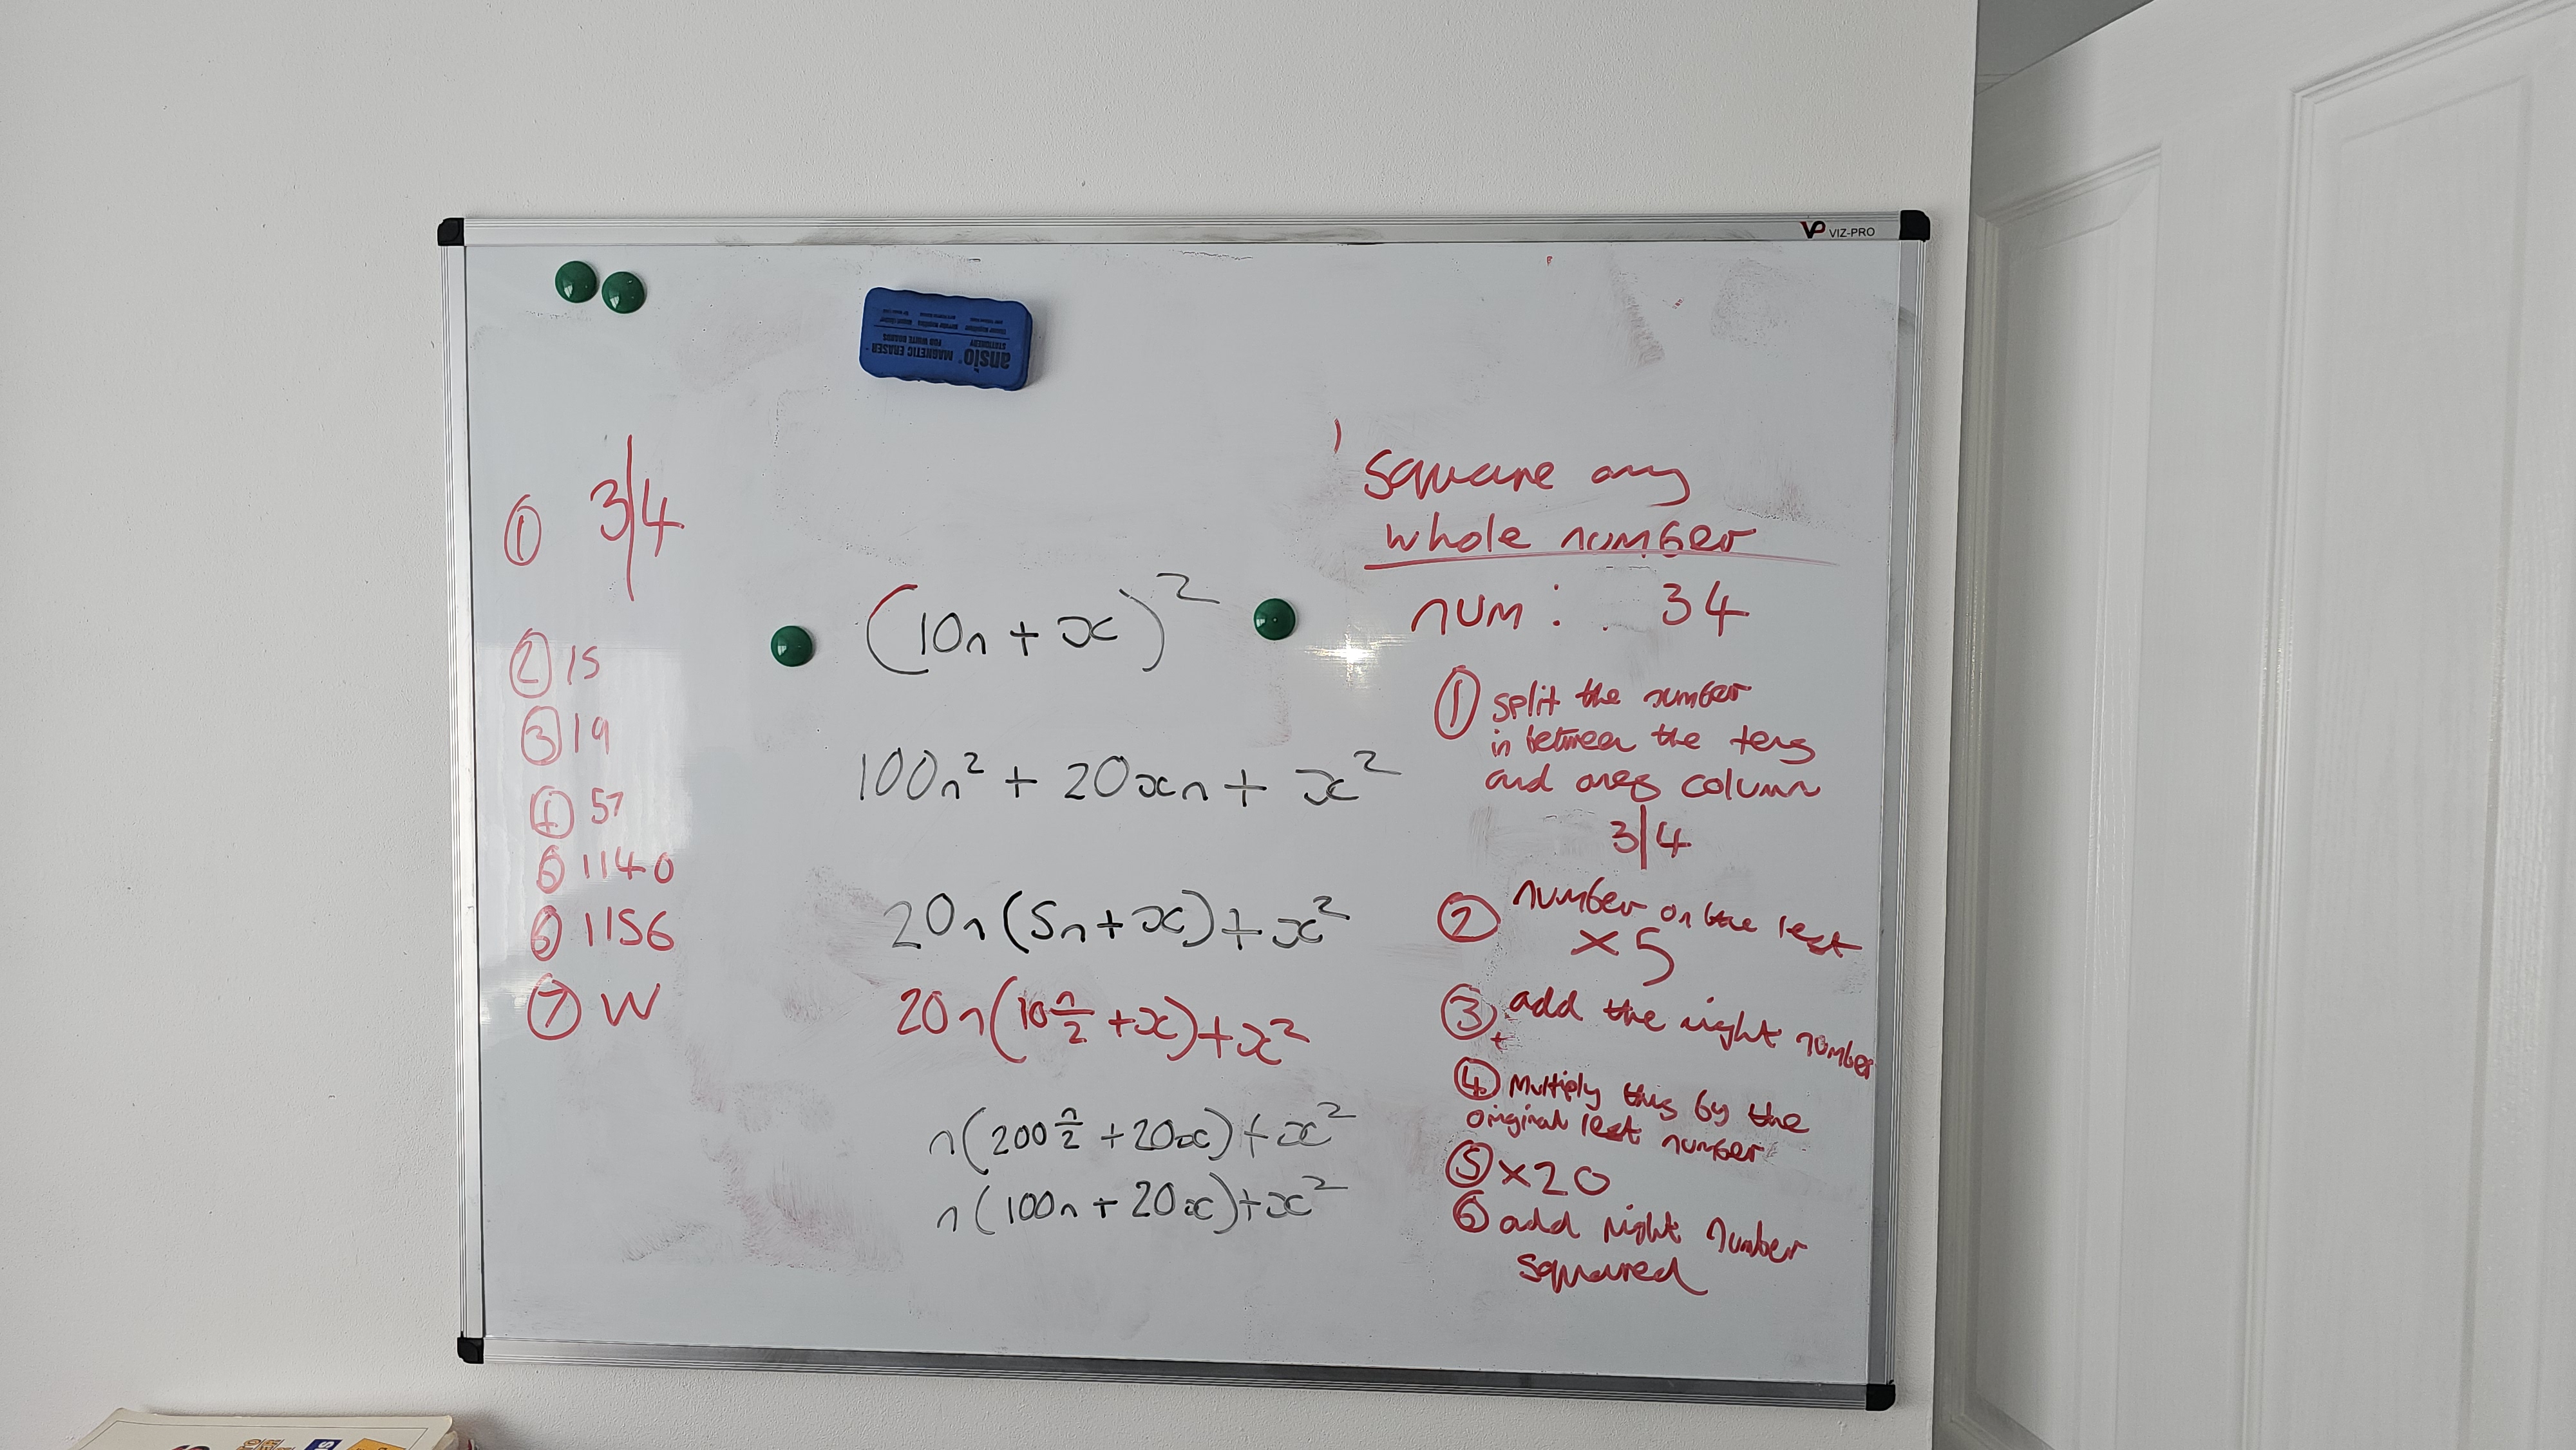 VP VIZ-PRO
ansio
STATIONERY
MAGNETIC ERASER
FOR WHITE BOARDS
① 3|4
② 15
③ 19
④ 57
⑤ 1140
⑥ 1156
⑦ W
(10n + x)²
100n² + 20xn + x²
20n(5n + x) + x²
20n(10 n/2 + x) + x²
n(200 n/2 + 20x) + x²
n(100n + 20x) + x²
Square any
whole number
num : 34
① split the number
in between the tens
and ones column
3|4
② number on the left
× 5
③ add the right number
④ Multiply this by the
original left number
⑤ ×20
⑥ add right number
squared